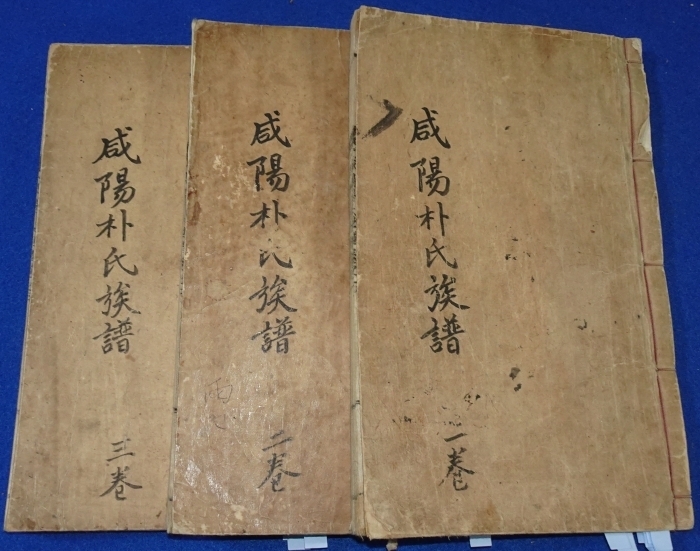 咸陽朴氏族譜
一卷
咸陽朴氏族譜
二卷
咸陽朴氏族譜
三卷